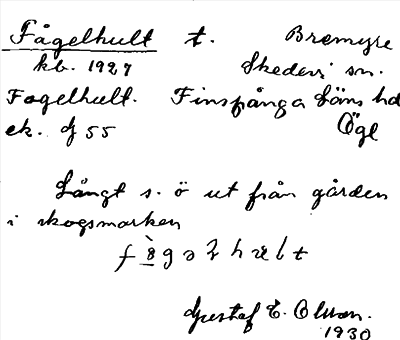 Fågelhult t. Bremyre
kb. 1927 Skedevi sn.
Fogelhult. Finspånga Läns hd
ek. J 55 Ögl
Långt s. ö ut från gården
i skogsmarken
Gustaf E. Olsson.
1930